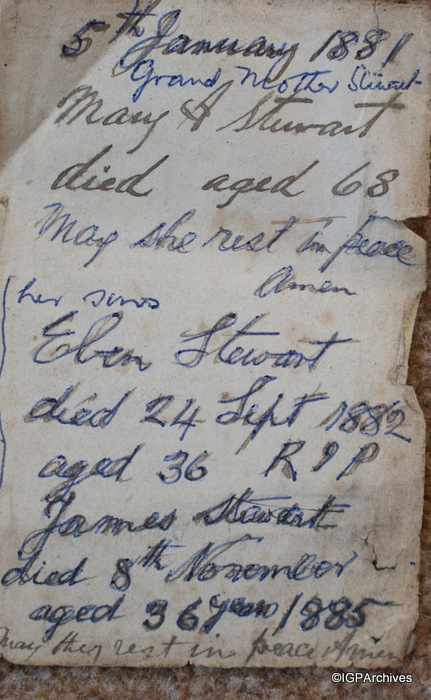 5th January 1881
Grand Mother Stewart
Mary A Stewart
died aged 68
May she rest in peace
Amen
her sons
Eben Stewart
died 24 Sept 1882
aged 36 R I P
James Stewart
died 8th November
aged 36 years 1885
May they rest in peace Amen
©IGPArchives